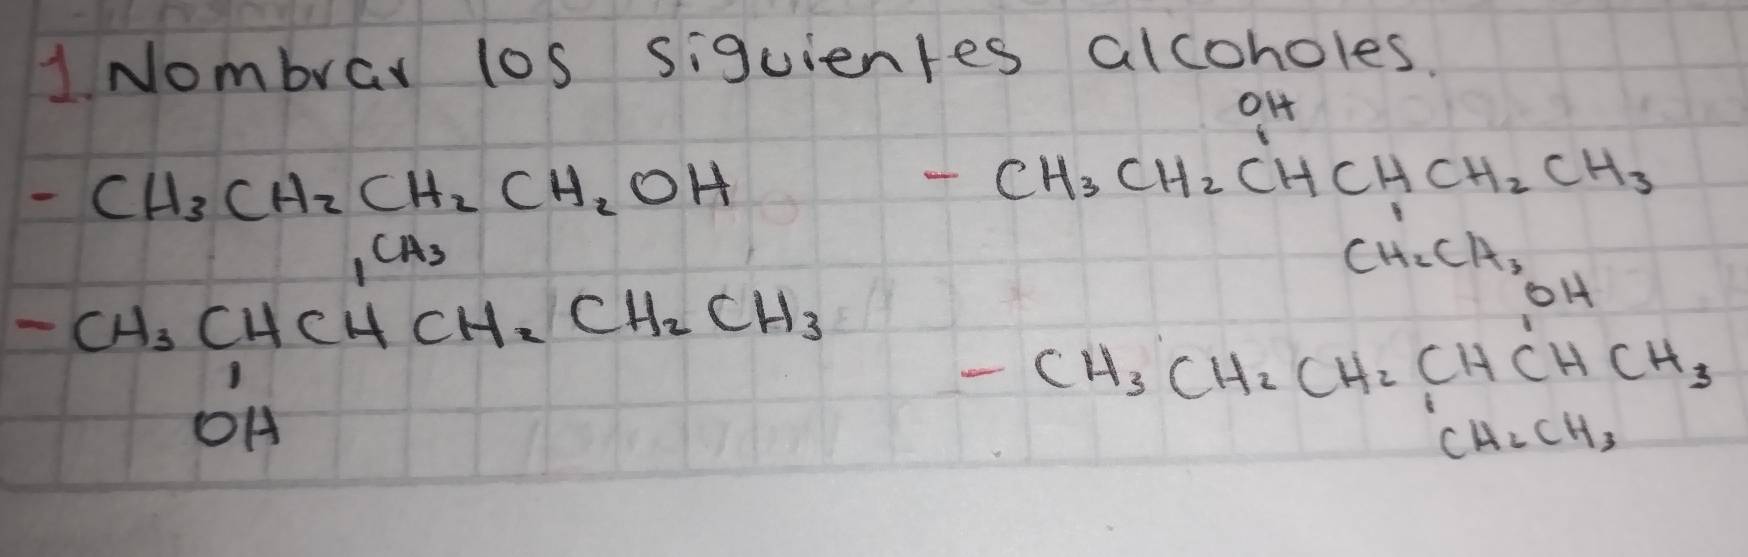 1. Nombrar los siguientes alcoholes.
- CH₃ CH₂ CH₂ CH₂ OH
CH₃
- CH₃ CH CH CH₂ CH₂ CH₃
OH
OH
- CH₃ CH₂ CH CH CH₂ CH₃
CH₂ CH₃
OH
- CH₃ CH₂ CH₂ CH CH CH₃
CH₂ CH₃